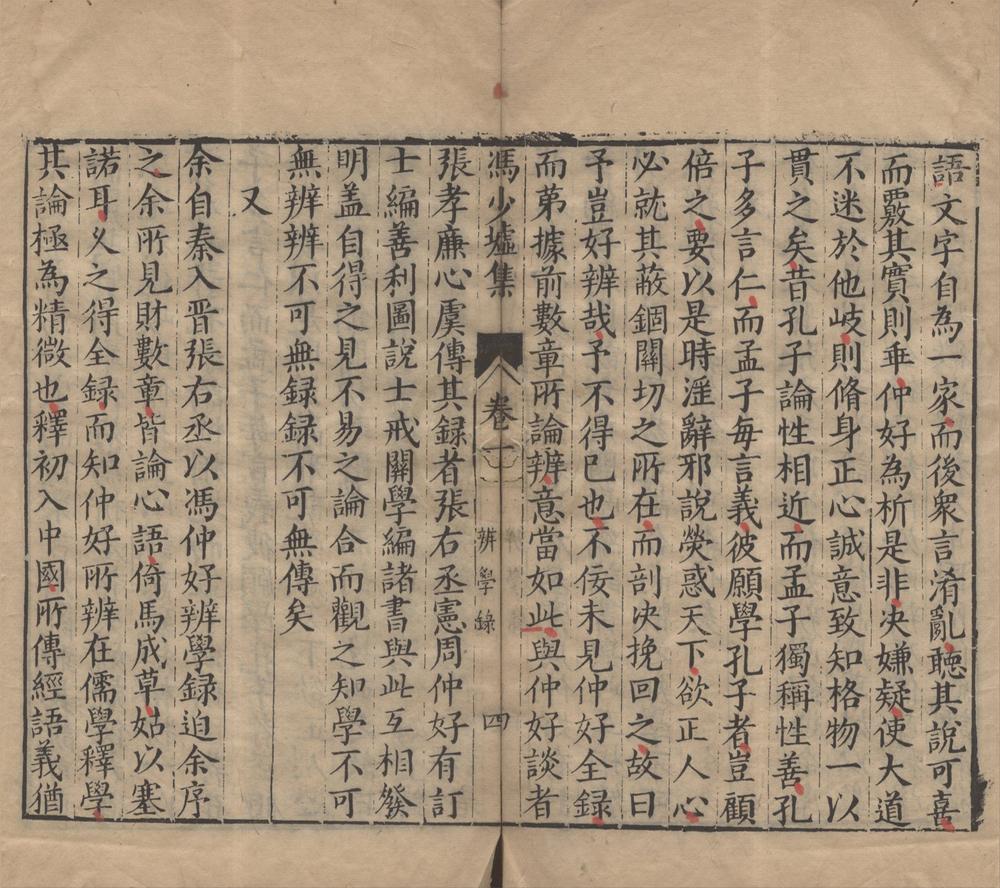 語文字自為一家而後衆言淆亂聽其說可喜
而覈其實則乖仲好為析是非决嫌疑使大道
不迷於他岐則脩身正心誠意致知格物一以
貫之矣昔孔子論性相近而孟子獨稱性善孔
子多言仁而孟子每言義彼願學孔子者豈顧
倍之要以是時淫辭邪說熒惑天下欲正人心
必就其蔽錮關切之所在而剖决挽回之故曰
予豈好辨哉予不得已也不佞未見仲好全録
而第據前數章所論辨意當如此與仲好談者
馮少墟集 卷一 辨學録 四
張孝廉心虞傳其録者張右丞憲周仲好有訂
士編善利圖說士戒關學編諸書與此互相發
明盖自得之見不易之論合而觀之知學不可
無辨辨不可無録録不可無傳矣
又
余自秦入晋張右丞以馮仲好辨學録迫余序
之余所見財數章皆論心語倚馬成草姑以塞
諾耳乂之得全録而知仲好所辨在儒學釋學
其論極為精微也釋初入中國所傳經語義猶